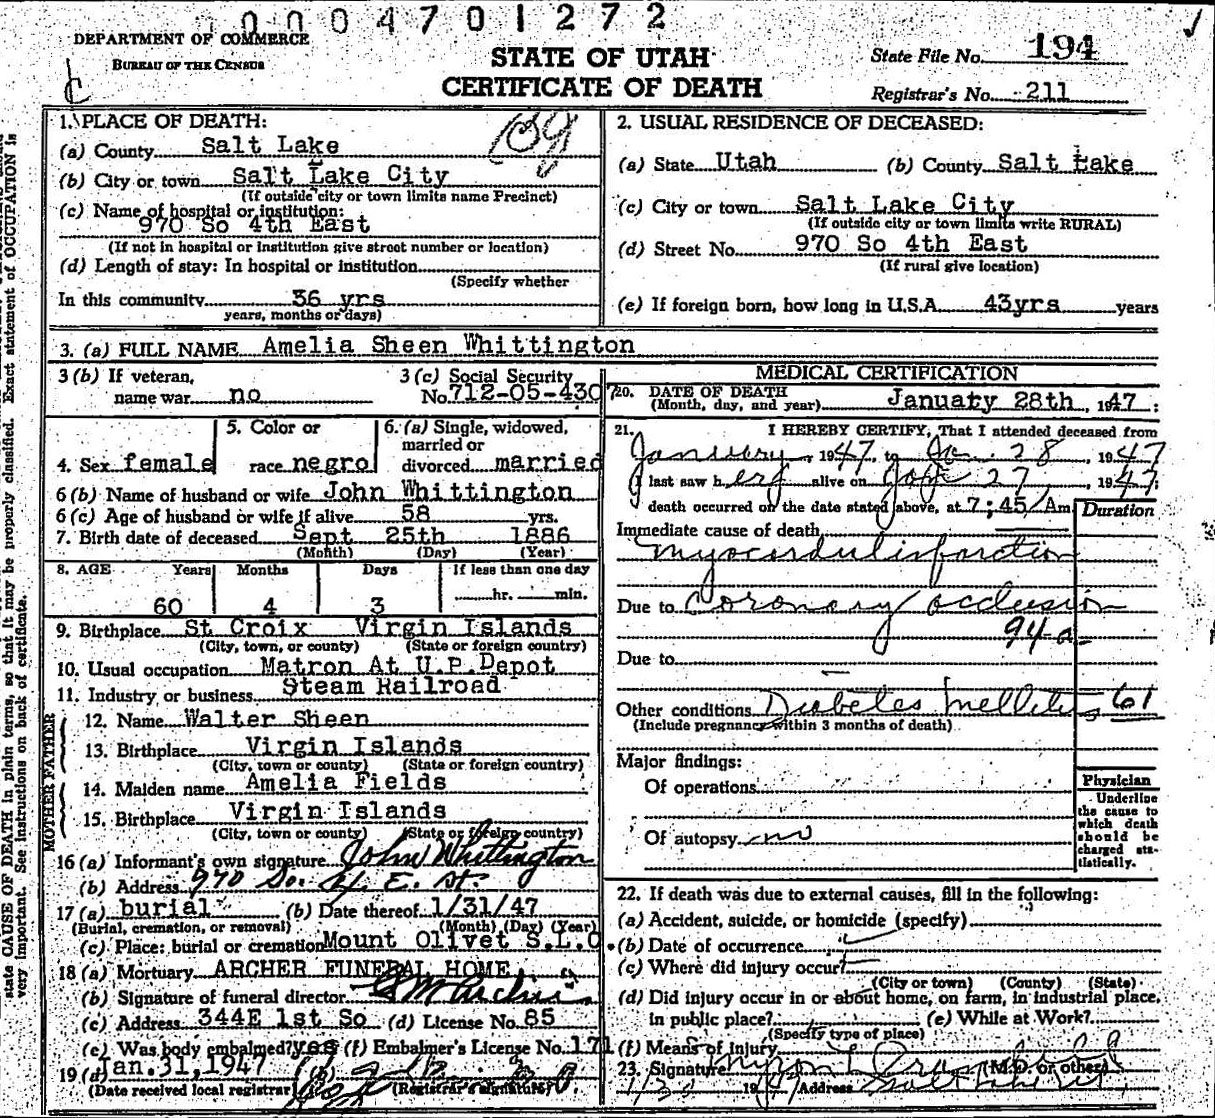 0004701272
DEPARTMENT OF COMMERCE
BUREAU OF THE CENSUS
STATE OF UTAH
CERTIFICATE OF DEATH
State File No. 194
Registrar's No. 211
1. PLACE OF DEATH:
(a) County Salt Lake
(b) City or town Salt Lake City
(If outside city or town limits name Precinct)
(c) Name of hospital or institution:
970 So 4th East
(If not in hospital or institution give street number or location)
(d) Length of stay: In hospital or institution
(Specify whether
In this community 36 yrs
years, months or days)
2. USUAL RESIDENCE OF DECEASED:
(a) State Utah (b) County Salt Lake
(c) City or town Salt Lake City
(If outside city or town limits write RURAL)
(d) Street No. 970 So 4th East
(If rural give location)
(e) If foreign born, how long in U.S.A. 43yrs years
3. (a) FULL NAME Amelia Sheen Whittington
3 (b) If veteran,
name war no
3 (c) Social Security
No. 712-05-4307
4. Sex female
5. Color or
race negro
6. (a) Single, widowed,
married or
divorced married
6 (b) Name of husband or wife John Whittington
6 (c) Age of husband or wife if alive 58 yrs.
7. Birth date of deceased Sept 25th 1886
(Month) (Day) (Year)
8. AGE Years Months Days If less than one day
60 4 3 hr. min.
9. Birthplace St Croix Virgin Islands
(City, town, or county) (State or foreign country)
10. Usual occupation Matron At U.P.Depot
11. Industry or business Steam Railroad
FATHER
12. Name Walter Sheen
13. Birthplace Virgin Islands
(City, town or county) (State or foreign country)
MOTHER
14. Maiden name Amelia Fields
15. Birthplace Virgin Islands
(City, town or county) (State or foreign country)
16 (a) Informant's own signature John Whittington
(b) Address 970 So. 4. E. St.
17 (a) burial (b) Date thereof 1/31/47
(Burial, cremation, or removal) (Month) (Day) (Year)
(c) Place: burial or cremation Mount Olivet S.L.C
18 (a) Mortuary ARCHER FUNERAL HOME
(b) Signature of funeral director
(c) Address 344E 1st So (d) License No. 85
(e) Was body embalmed? yes (f) Embalmer's License No. 171
19 (a) Jan. 31, 1947 (b)
(Date received local registrar) (Registrar's signature)
MEDICAL CERTIFICATION
20. DATE OF DEATH
(Month, day, and year) January 28th, 1947
21. I HEREBY CERTIFY, That I attended deceased from
January, 1947, to Jan. 28, 1947
I last saw her alive on Jan 27, 1947;
death occurred on the date stated above, at 7:45/Am.
Duration
Immediate cause of death
Myocardial infarction
Due to Coronary occlusion
94-a
Due to
Other conditions Diabetes Mellitus 61
(Include pregnancy within 3 months of death)
Major findings:
Of operations
Of autopsy no
Physician
Underline
the cause to
which death
should be
charged sta-
tistically.
22. If death was due to external causes, fill in the following:
(a) Accident, suicide, or homicide (specify)
(b) Date of occurrence
(c) Where did injury occur?
(City or town) (County) (State)
(d) Did injury occur in or about home, on farm, in industrial place,
in public place? (e) While at Work?
(Specify type of place)
(f) Means of injury
23. Signature (M.D. or other)
1/30 1947 Address Salt Lake
state CAUSE OF DEATH in plain terms, so that it may be properly classified. Exact statement of OCCUPATION is
very important. See instructions on back of certificate.